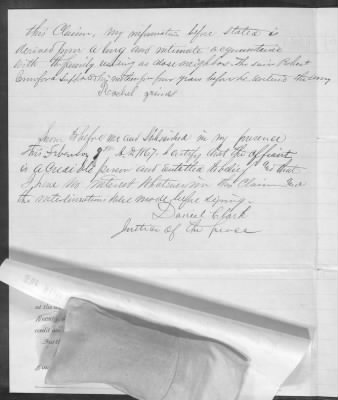 this Claim, My information before stated is
derived from a long and intimate acquaintance
with the family residing as close neighbors the said Robert
Crawford supported his mother for four years before he entered the army
Rachel
Sworn to before me and Subscribed in my presence
this February 9th A.D. 1867. I certify that the affiant
is a Credible person and entitled to belief and that
I have no interest whatever in this Claim and
the interlineations were made before signing.
Daniel Clark
Justice of the peace